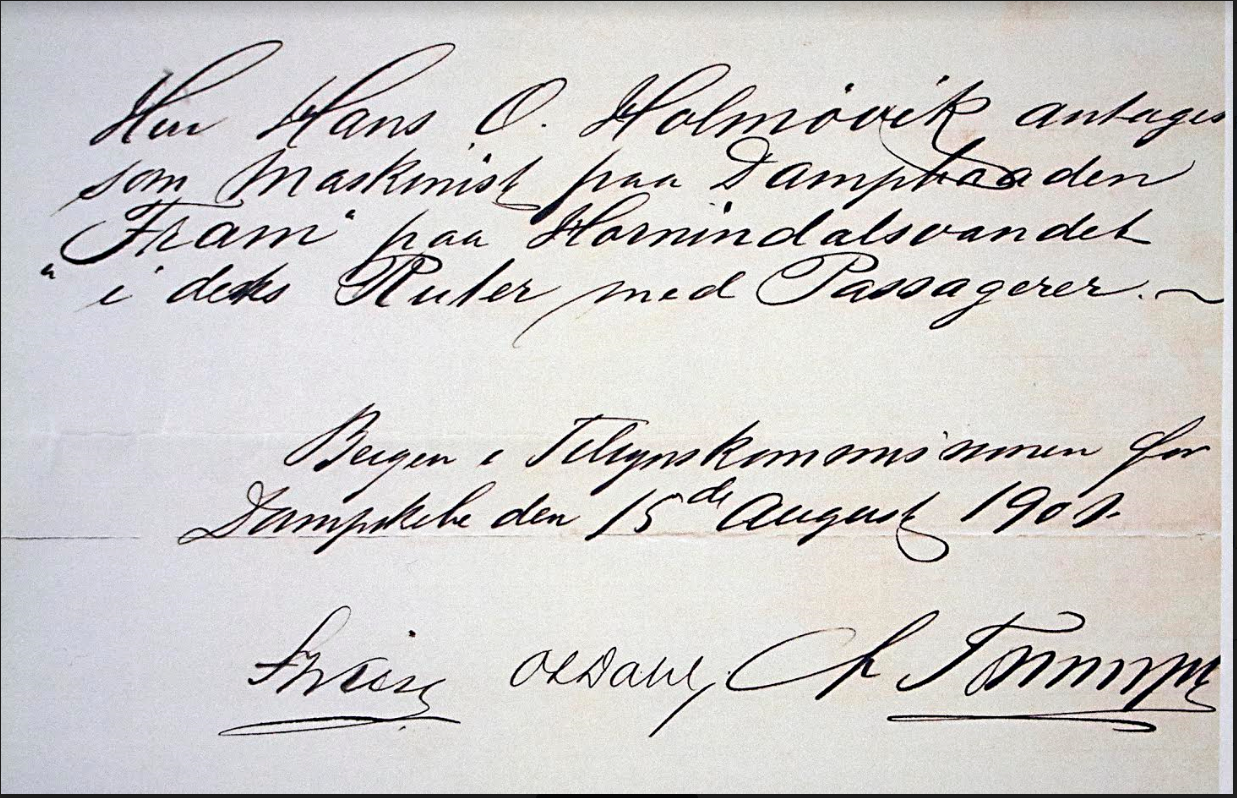 Herr Hans O. Holmøvik antages
som Maskinist paa Dampbaaden
"Fram" paa Hornindalsvandet
i dets Ruter med Passagerer. —
Bergen i Tilsynskommissionen for
Dampskibe den 15de August 1901.
OLDahl, Ch